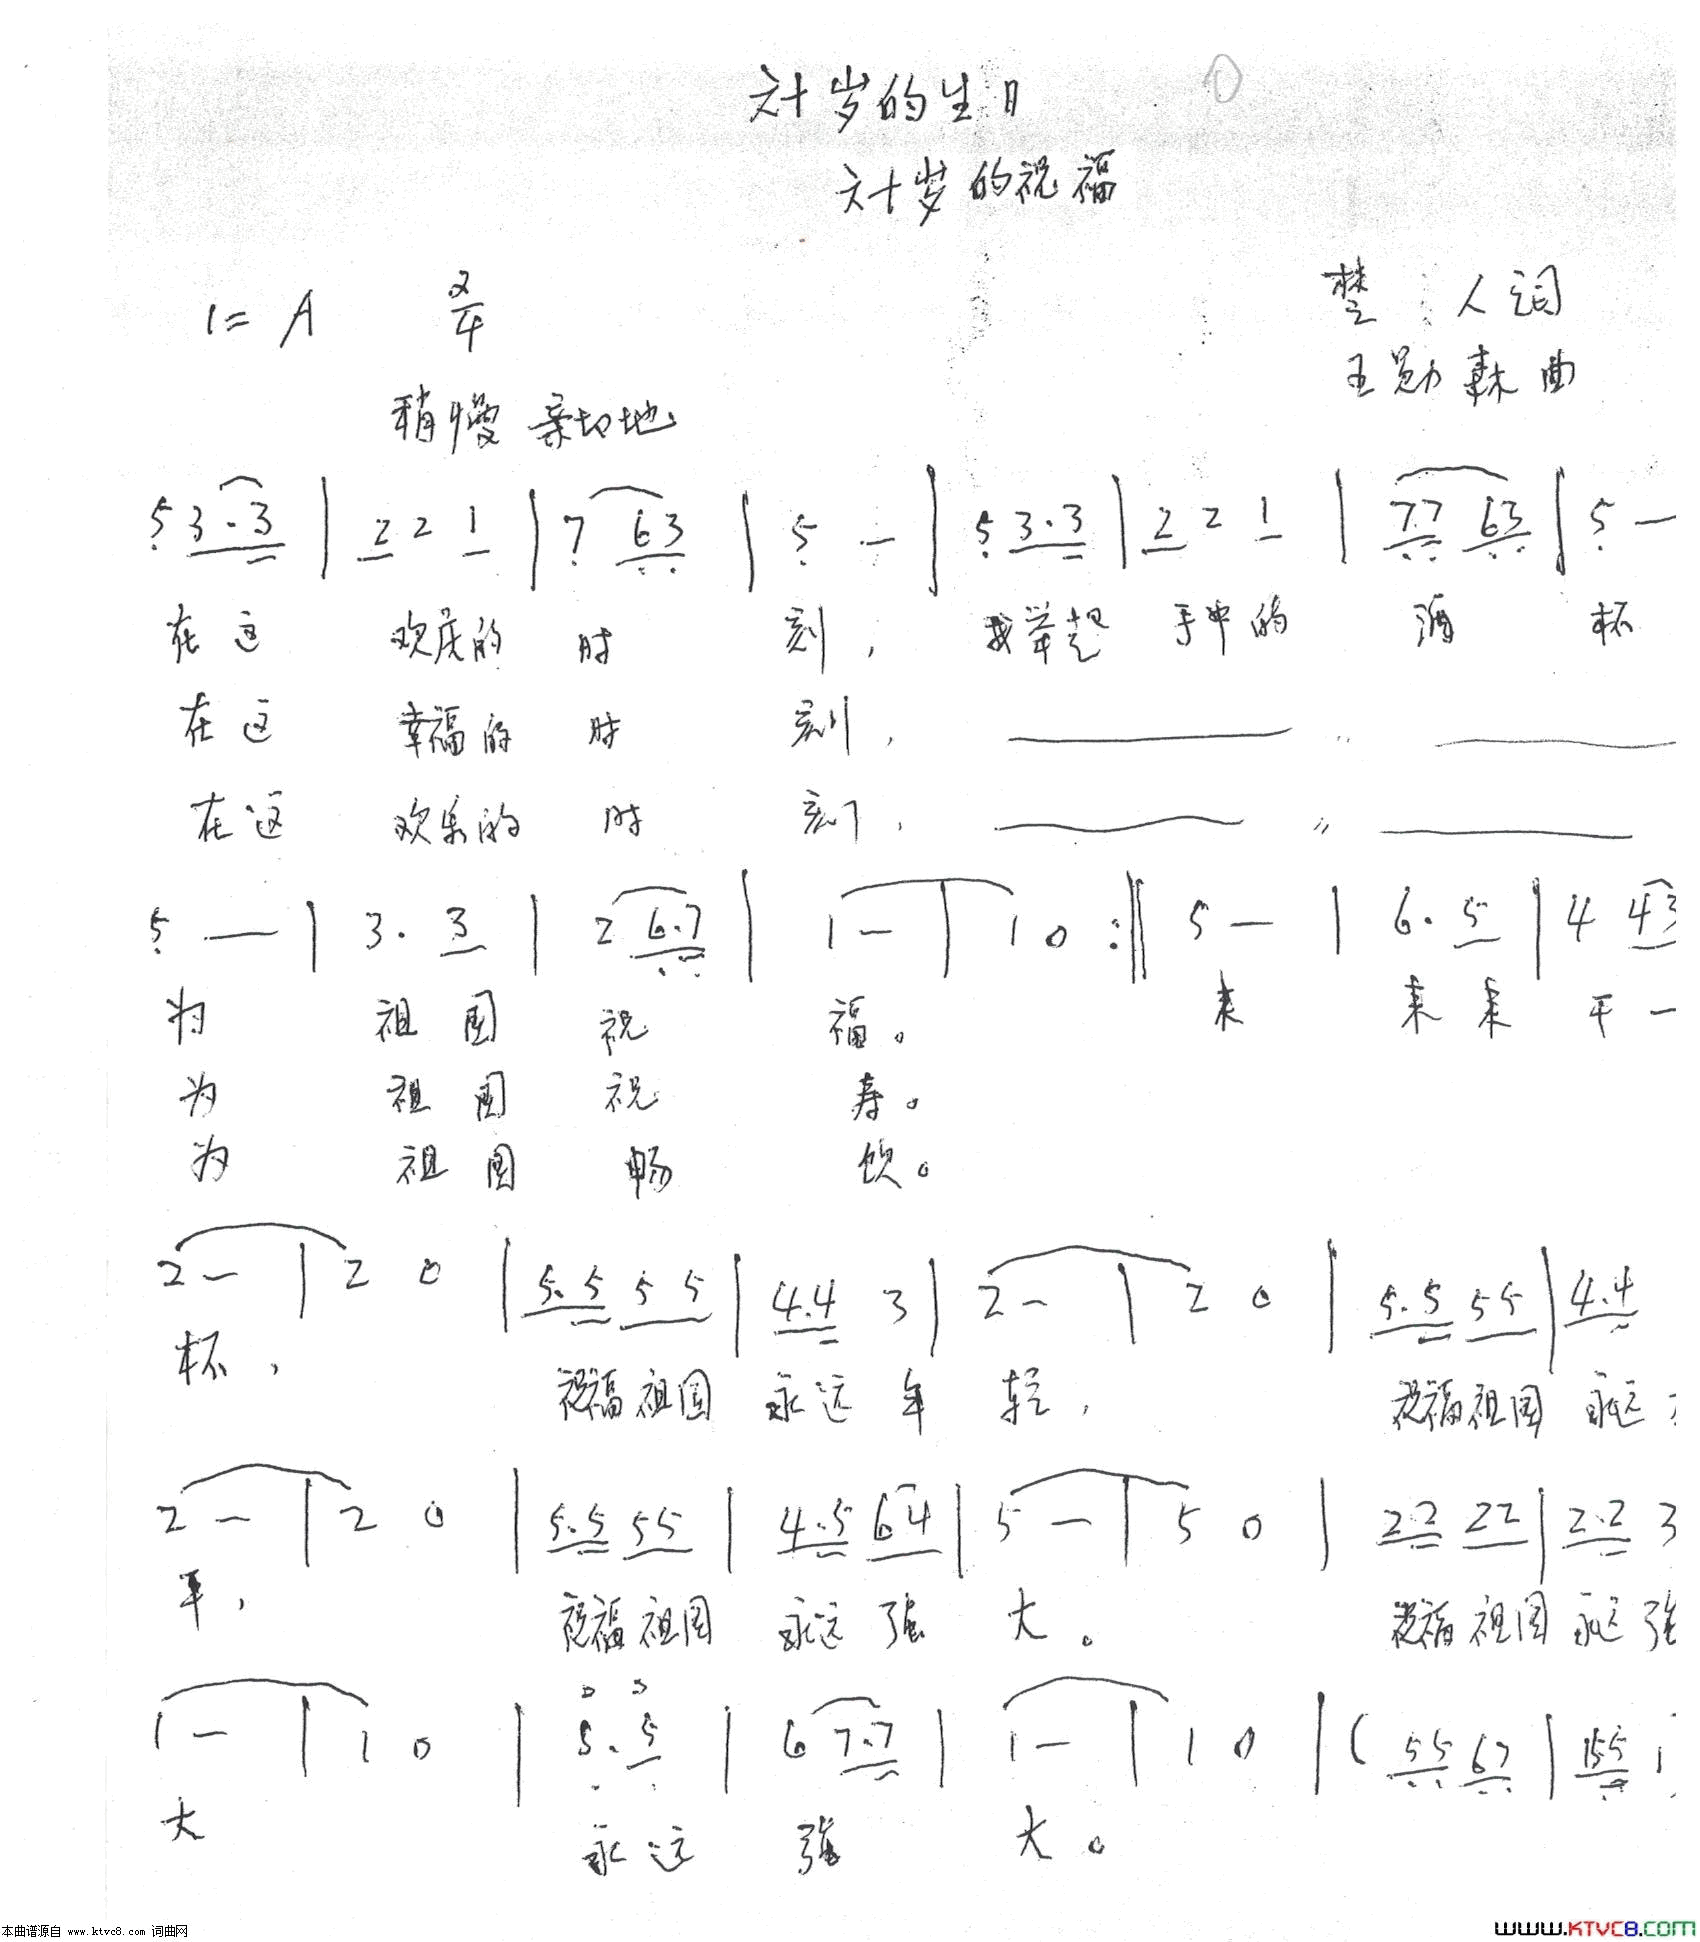 六十岁的生日
六十岁的祝福
1=A 2/4 楚 人词
王勋 曲
稍慢 亲切地
5 3·3 | 2 2 1 | 7 63 | 5 — | 5 3·3 | 2 2 1 | 77 63 | 5 —
在这 欢庆的 时 刻， 我举起 手中的 酒 杯
在这 幸福的 时 刻， ——— 〃 ———
在这 欢乐的 时 刻， ——— 〃 ———
5 — | 3· 3 | 2 6·7 | 1 — | 1 0 :‖ 5 — | 6· 5 | 4 43
为 祖国 祝 福。 来 来来 干一
为 祖国 祝 寿。
为 祖国 畅 饮。
2 — | 2 0 | 5·5 5 5 | 4·4 3 | 2 — | 2 0 | 5·5 55 | 4·4
杯， 祝福祖国 永远年 轻， 祝福祖国 永远
2 — | 2 0 | 5·5 55 | 4·5 64 | 5 — | 5 0 | 22 22 | 2·2 3
平， 祝福祖国 永远强 大。 祝福祖国 永远强
1 — | 1 0 | 5·5 | 6 7·7 | 1 — | 1 0 | ( 55 67 | 155 1
大 永远 强 大。
本曲谱源自 www.ktvc8.com 词曲网
www.KTVC8.com